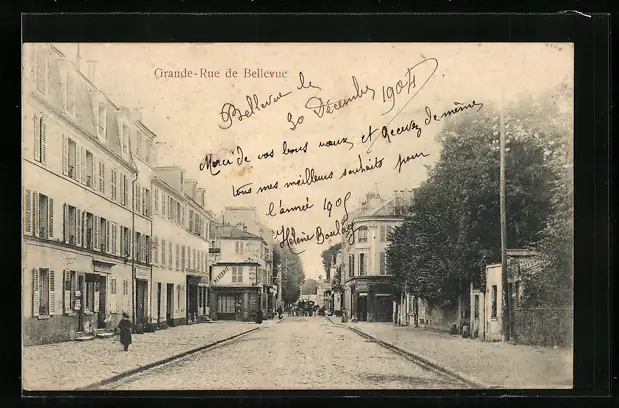 Grande-Rue de Bellevue
Bellevue le
30 Décembre 1904
Merci de vos bons vœux, et recevez de même
tous mes meilleurs souhaits pour
l'année 1905
Hélène